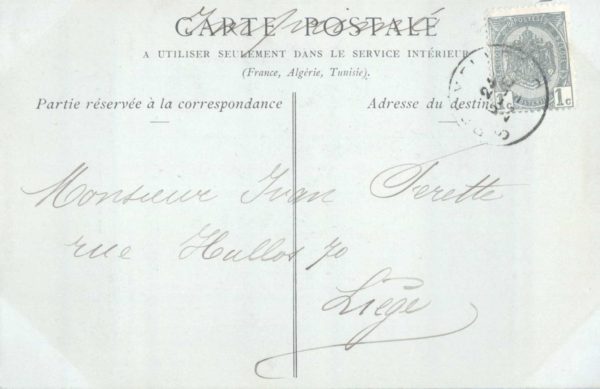 Imprimé
CARTE POSTALE
A UTILISER SEULEMENT DANS LE SERVICE INTÉRIEUR
(France, Algérie, Tunisie).
Partie réservée à la correspondance
Adresse du destin
1c
Monsieur Ivan Ferette
rue Hullos 70
Liège